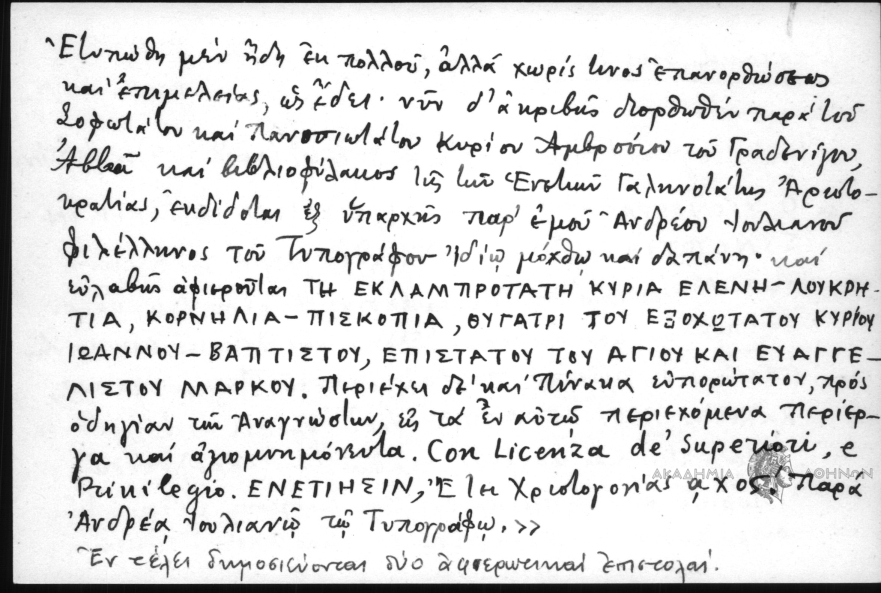 Ἐτυπώθη μὲν ἤδη ἐκ πολλοῦ, ἀλλὰ χωρὶς τινος ἐπανορθώσεως
καὶ ἐπιμελείας, ὡς ἔδει· νῦν δ' ἀκριβῶς διορθωθὲν παρὰ τοῦ
Σοφωτάτου καὶ Πανοσιωτάτου Κυρίου Ἀμβροσίου τοῦ Γραδενίγου,
Ἀββᾶ καὶ βιβλιοφύλακος τῆς τῶν Ἐνετῶν Γαληνοτάτης Ἀριστο-
κρατίας, ἐκδίδοται ἐξ ὑπαρχῆς παρ' ἐμοῦ Ἀνδρέου Ἰουλιανοῦ
φιλέλληνος τοῦ Τυπογράφου ἰδίῳ μόχθῳ καὶ δαπάνῃ· καὶ
εὐλαβῶς ἀφιεροῦται ΤΗ ΕΚΛΑΜΠΡΟΤΑΤΗ ΚΥΡΙΑ ΕΛΕΝΗ-ΛΟΥΚΡΗ-
ΤΙΑ, ΚΟΡΝΗΛΙΑ-ΠΙΣΚΟΠΙΑ, ΘΥΓΑΤΡΙ ΤΟΥ ΕΞΟΧΩΤΑΤΟΥ ΚΥΡΙΟΥ
ΙΩΑΝΝΟΥ-ΒΑΠΤΙΣΤΟΥ, ΕΠΙΣΤΑΤΟΥ ΤΟΥ ΑΓΙΟΥ ΚΑΙ ΕΥΑΓΓΕ-
ΛΙΣΤΟΥ ΜΑΡΚΟΥ. Περιέχει δὲ καὶ Πίνακα εὐπορώτατον, πρὸς
ὁδηγίαν τῶν Ἀναγνώστων, εἰς τὰ ἐν αὐτῷ περιεχόμενα περίερ-
γα καὶ ἀξιομνημόνευτα. Con Licenza de' Superiori, e
Privilegio. ΕΝΕΤΙΗΣΙΝ, Ἔτει Χριστογονίας ᾳχος. Παρὰ
Ἀνδρέᾳ Ἰουλιανῷ τῷ Τυπογράφῳ.>>
Ἐν τέλει δημοσιεύονται δύο ἀφιερωτικαὶ ἐπιστολαί.
ΑΚΑΔΗΜΙΑ ΑΘΗΝΩΝ